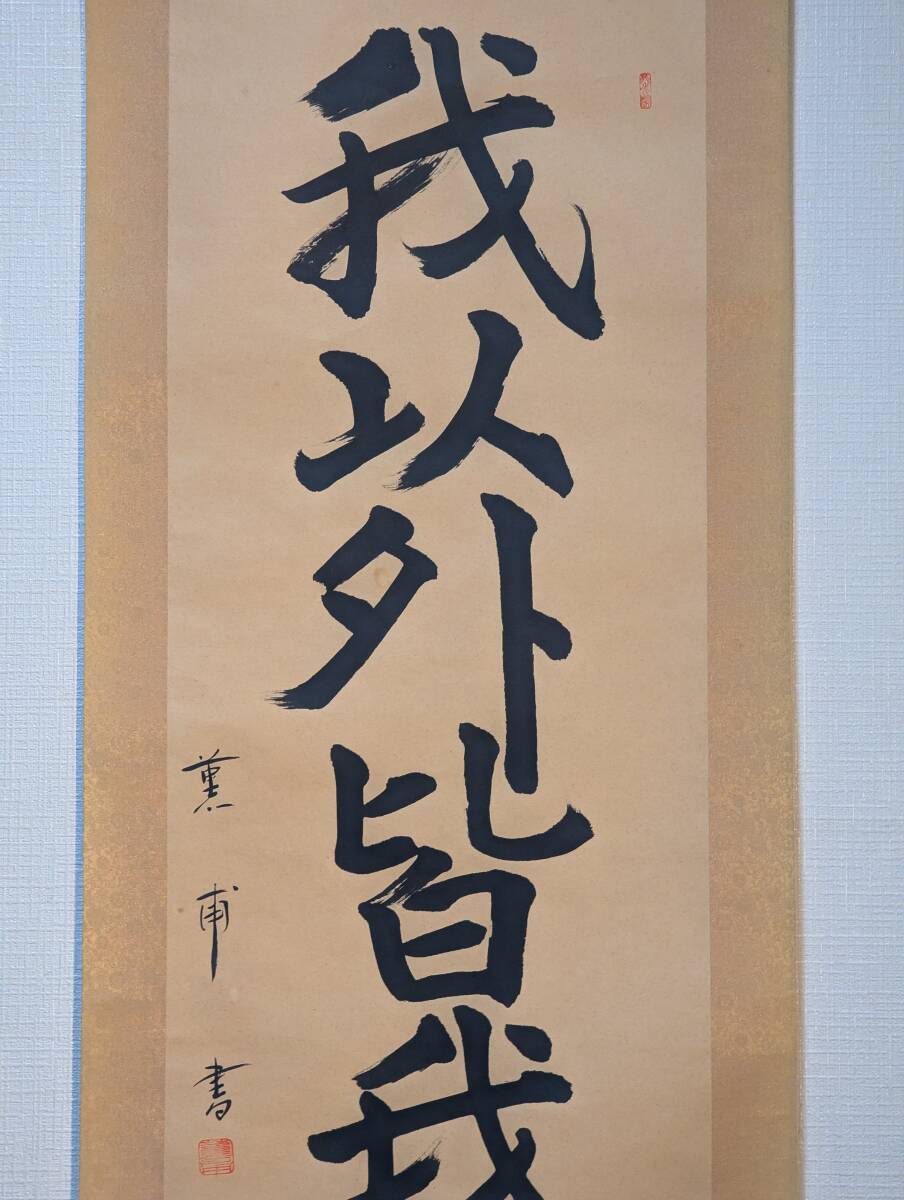 我以外皆我
薫甫書